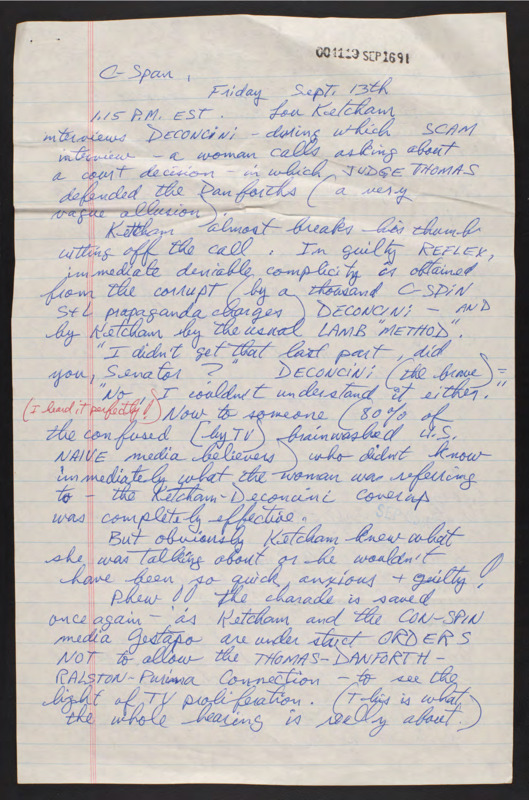 004119 SEP 16 91
C-Span,
Friday Sept. 13th
1.15 P.M. EST. Lou Ketcham
interviews DECONCINI - during which SCAM
interview - a woman calls asking about
a court decision - in which JUDGE THOMAS
defended the Danforths (a very
vague allusion)
Ketcham almost breaks his thumb
cutting off the call. In guilty REFLEX,
immediate deniable complicity is obtained
from the corrupt (by a thousand C-SPiN
S+L propaganda charges) DECONCINI - AND
by Ketcham by the usual LAMB "METHOD".
"I didn't get that last part, did
you, Senator?" DECONCINI (the brave) =
"No - I couldn't understand it either."
(I heard it perfectly!) Now to someone (80% of
the confused [by TV] brainwashed U.S.
NAIVE media believers) who didn't know
immediately what the woman was referring
to - the Ketcham-Deconcini coverup
was completely effective.
But obviously Ketcham knew what
she was talking about or he wouldn't
have been so quick, anxious + guilty!
Phew!! The charade is saved
once again - as Ketcham and the CON-SPIN
media Gestapo are under strict ORDERS
NOT to allow the THOMAS-DANFORTH-
RALSTON-Purina Connection - to see the
light of TV proliferation. (This is what
the whole hearing is really about.)